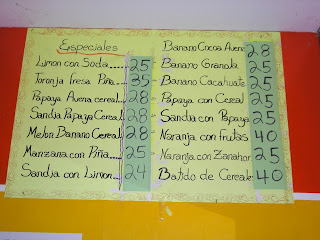 Especiales
Limon con Soda.... 25
Toronja Fresa Piña 35
Papaya Avena cereal.. 28
Sandia Papaya Cereal 28
Melon Banano Cereal 28
Manzana con Piña.... 25
Sandia con Limon... 24
Banano Cocoa Avena 28
Banano Granola 25
Banano Cacahuate 25
Papaya con Cereal 25
Sandia con Papaya 25
Naranja con frutas 40
Naranja con Zanahor 25
Batido de Cereale 40